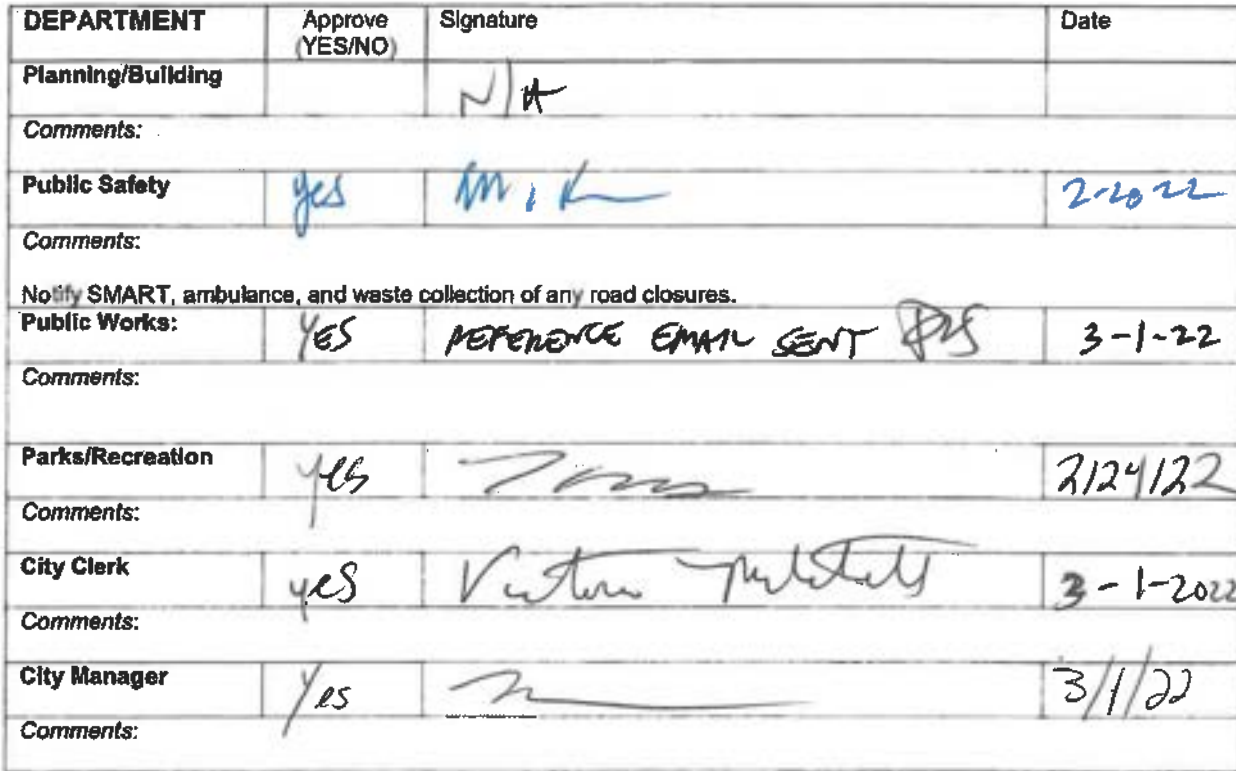 DEPARTMENT Approve (YES/NO) Signature Date
Planning/Building N/A
Comments:
Public Safety yes 2-20 22
Comments:
Notify SMART, ambulance, and waste collection of any road closures.
Public Works: YES REFERENCE EMAIL SENT 3-1-22
Comments:
Parks/Recreation yes 2/24/22
Comments:
City Clerk yes 3-1-2022
Comments:
City Manager Yes 3/1/22
Comments: